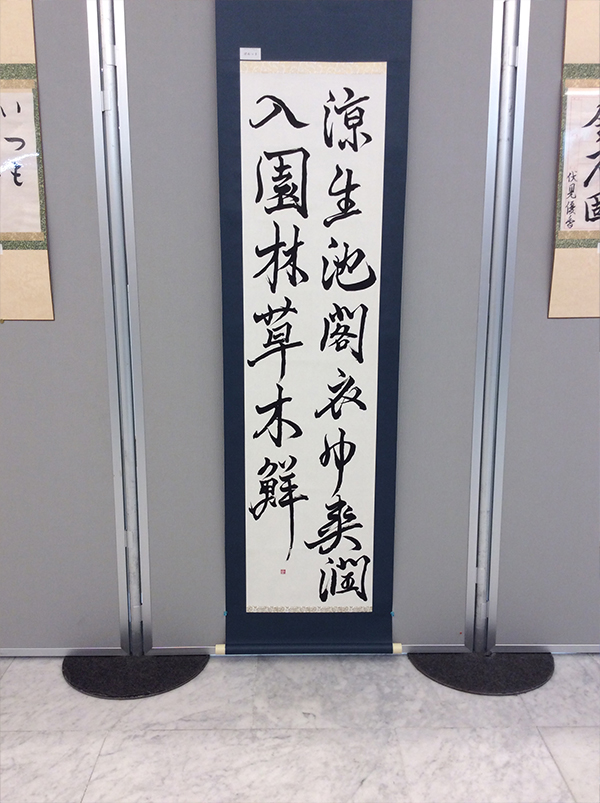 伏見
涼生池閣衣巾爽潤
入園林草木鮮
いつも